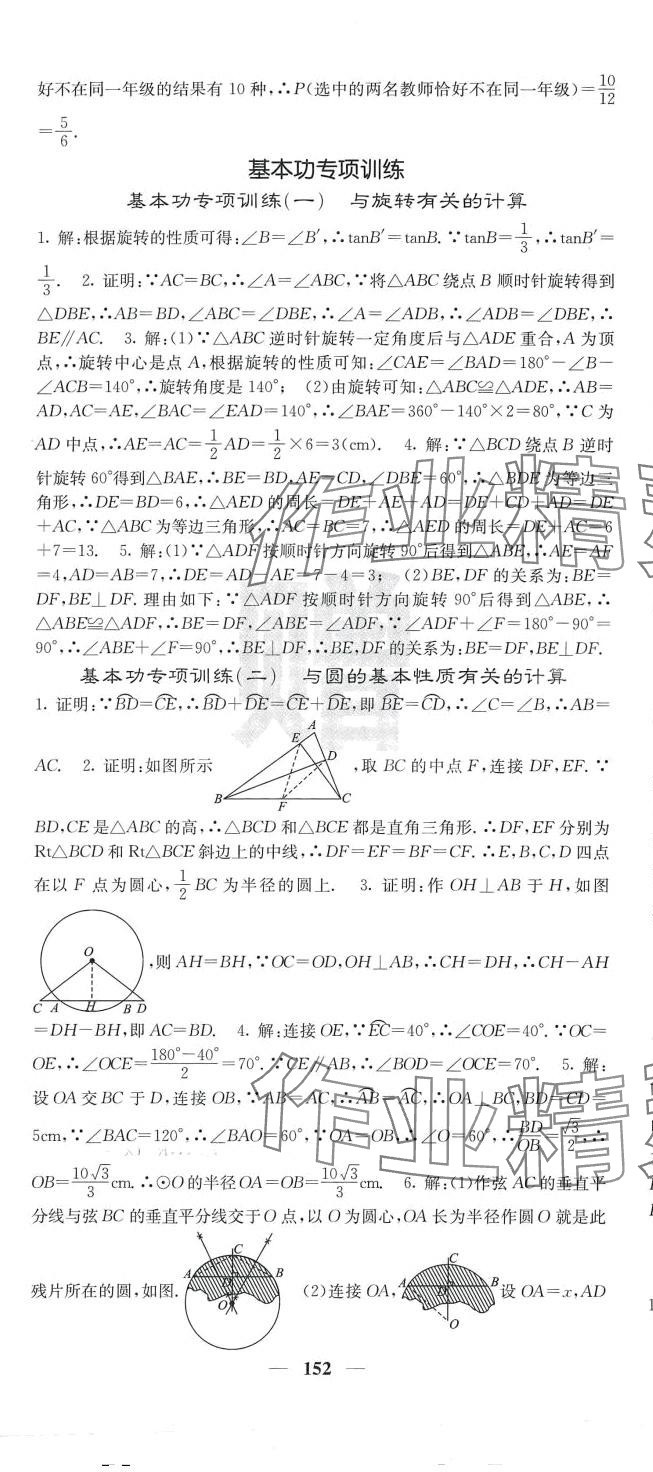 好不在同一年级的结果有 10 种,∴P(选中的两名教师恰好不在同一年级)=10/12
=5/6.
基本功专项训练
基本功专项训练(一) 与旋转有关的计算
1. 解:根据旋转的性质可得:∠B=∠B′,∴tanB′=tanB. ∵tanB=1/3,∴tanB′=
1/3. 2. 证明:∵AC=BC,∴∠A=∠ABC,∵将△ABC 绕点 B 顺时针旋转得到
△DBE,∴AB=BD,∠ABC=∠DBE,∴∠A=∠ADB,∴∠ADB=∠DBE,∴
BE∥AC. 3. 解:(1)∵△ABC 逆时针旋转一定角度后与△ADE 重合,A 为顶
点,∴旋转中心是点 A,根据旋转的性质可知:∠CAE=∠BAD=180°-∠B-
∠ACB=140°,∴旋转角度是 140°; (2)由旋转可知:△ABC≌△ADE,∴AB=
AD,AC=AE,∠BAC=∠EAD=140°,∴∠BAE=360°-140°×2=80°,∵C 为
AD 中点,∴AE=AC=1/2AD=1/2×6=3(cm). 4. 解:∵△BCD 绕点 B 逆时
针旋转 60°得到△BAE,∴BE=BD,AE=CD,∠DBE=60°,∴△BDE 为等边三
角形,∴DE=BD=6,∴△AED 的周长=DE+AE+AD=DE+CD+AD=DE
+AC,∵△ABC 为等边三角形,∴AC=BC=7,∴△AED 的周长=DE+AC=6
+7=13. 5. 解:(1)∵△ADF 按顺时针方向旋转 90°后得到△ABE,∴AE=AF
=4,AD=AB=7,∴DE=AD-AE=7-4=3; (2)BE,DF 的关系为:BE=
DF,BE⊥DF. 理由如下:∵△ADF 按顺时针方向旋转 90°后得到△ABE,∴
△ABE≌△ADF,∴BE=DF,∠ABE=∠ADF,∵∠ADF+∠F=180°-90°=
90°,∴∠ABE+∠F=90°,∴BE⊥DF,∴BE,DF 的关系为:BE=DF,BE⊥DF.
基本功专项训练(二) 与圆的基本性质有关的计算
1. 证明:∵B͡D=C͡E,∴B͡D+D͡E=C͡E+D͡E,即 B͡E=C͡D,∴∠C=∠B,∴AB=
AC. 2. 证明:如图所示 A E D B F C ,取 BC 的中点 F,连接 DF,EF. ∵
BD,CE 是△ABC 的高,∴△BCD 和△BCE 都是直角三角形. ∴DF,EF 分别为
Rt△BCD 和 Rt△BCE 斜边上的中线,∴DF=EF=BF=CF. ∴E,B,C,D 四点
在以 F 点为圆心,1/2BC 为半径的圆上. 3. 证明:作 OH⊥AB 于 H,如图
O C A H B D ,则 AH=BH,∵OC=OD,OH⊥AB,∴CH=DH,∴CH-AH
=DH-BH,即 AC=BD. 4. 解:连接 OE,∵E͡C=40°,∴∠COE=40°. ∵OC=
OE,∴∠OCE=(180°-40°)/2=70°. ∵CE∥AB,∴∠BOD=∠OCE=70°. 5. 解:
设 OA 交 BC 于 D,连接 OB,∵AB=AC,∴A͡B=A͡C,∴OA⊥BC,BD=CD=
5cm,∵∠BAC=120°,∴∠BAO=60°,∵OA=OB,∴∠O=60°,∴BD/OB=√3/2,∴
OB=10√3/3cm. ∴⊙O 的半径 OA=OB=10√3/3cm. 6. 解:(1)作弦 AC 的垂直平
分线与弦 BC 的垂直平分线交于 O 点,以 O 为圆心,OA 长为半径作圆 O 就是此
残片所在的圆,如图. A C B D O (2)连接 OA, A C B D O 设 OA=x,AD
— 152 —
作业精
作业精
赠